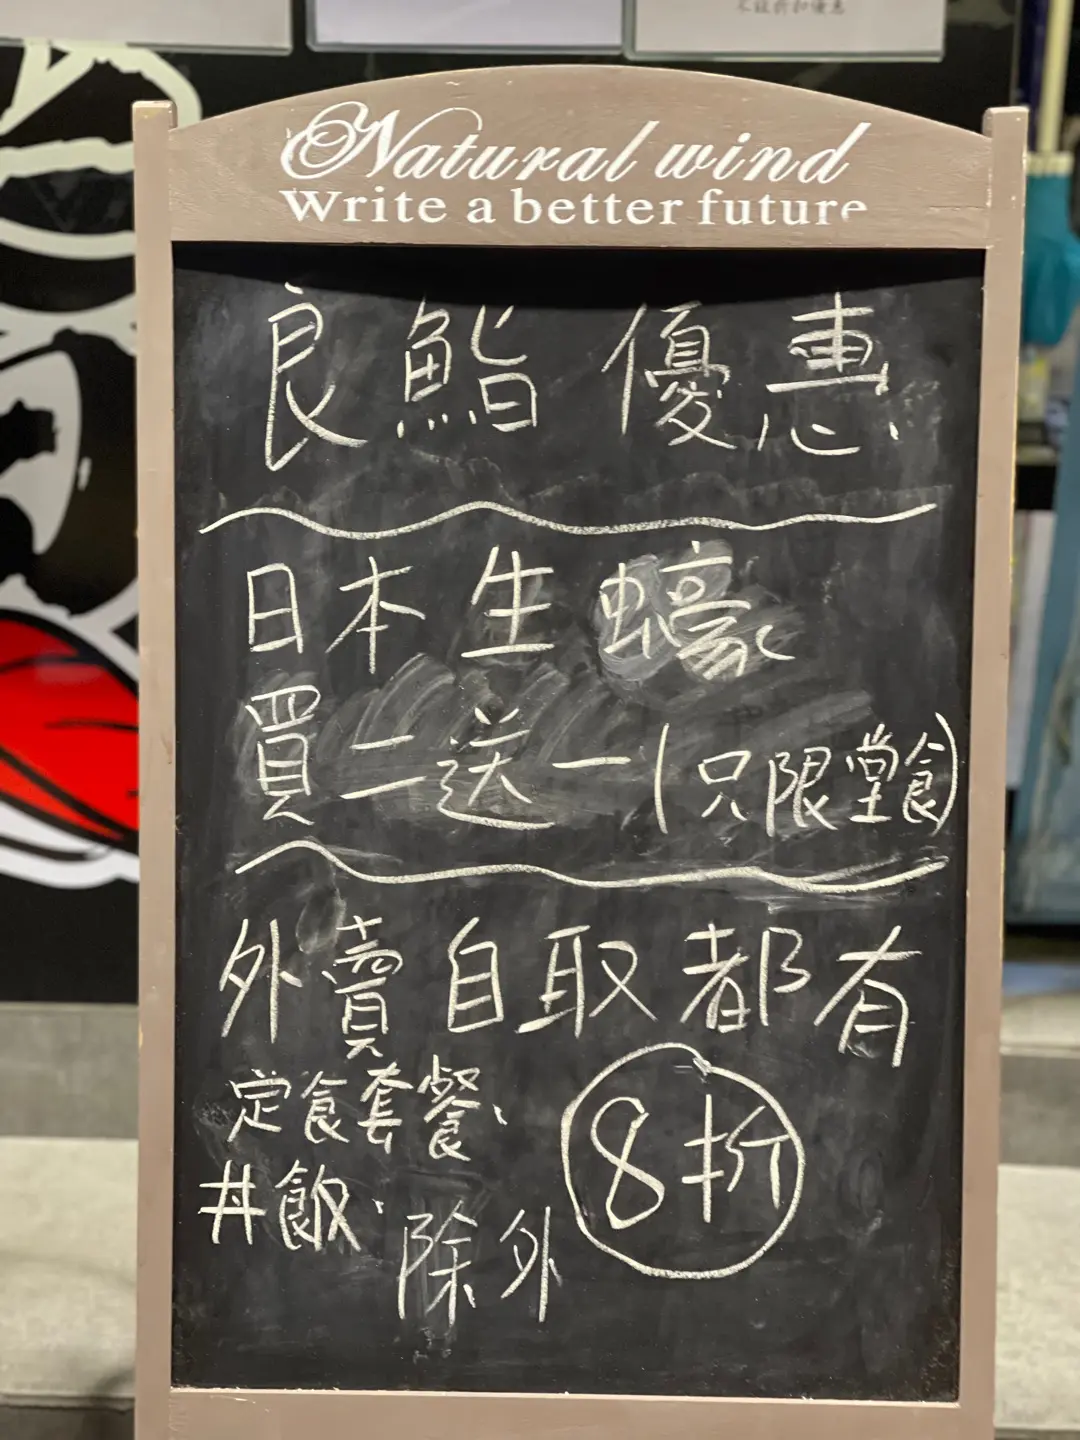 不設折扣優惠
Natural wind
Write a better future
良鮨 優惠
日本生蠔
買二送一(只限堂食)
外賣自取都有
定食套餐、
丼飯. 除外
8折